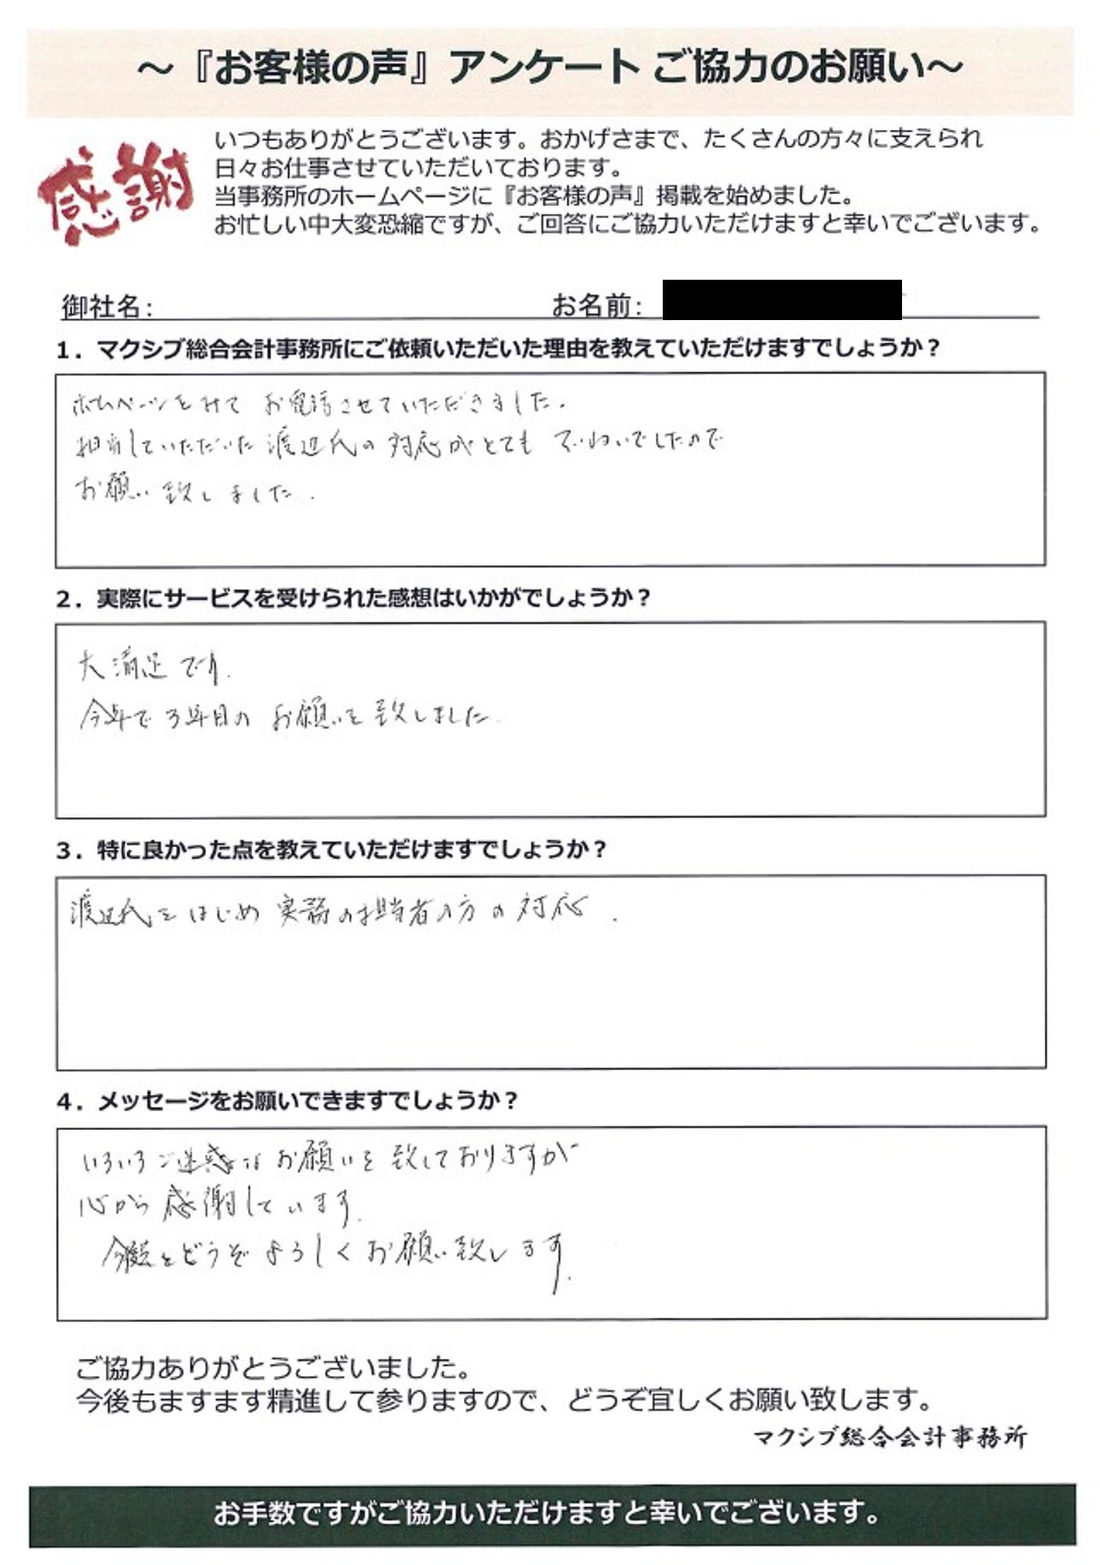 ～『お客様の声』アンケート ご協力のお願い～
感謝
いつもありがとうございます。おかげさまで、たくさんの方々に支えられ
日々お仕事させていただいております。
当事務所のホームページに『お客様の声』掲載を始めました。
お忙しい中大変恐縮ですが、ご回答にご協力いただけますと幸いでございます。
御社名： お名前：
１．マクシブ総合会計事務所にご依頼いただいた理由を教えていただけますでしょうか？
ホームページをみて お電話させていただきました。
担当していただいた 渡辺氏の 対応がとても ていねいでしたので
お願い 致しました．
２．実際にサービスを受けられた感想はいかがでしょうか？
大満足です．
今年で 3年目の お願いを 致しました
３．特に良かった点を教えていただけますでしょうか？
渡辺氏をはじめ 実務の担当者の方の 対応．
４．メッセージをお願いできますでしょうか？
いろいろ ご迷惑な お願いを 致しておりますが
心から 感謝しています．
今後もどうぞ よろしく お願い致します．
ご協力ありがとうございました。
今後もますます精進して参りますので、どうぞ宜しくお願い致します。
マクシブ総合会計事務所
お手数ですがご協力いただけますと幸いでございます。